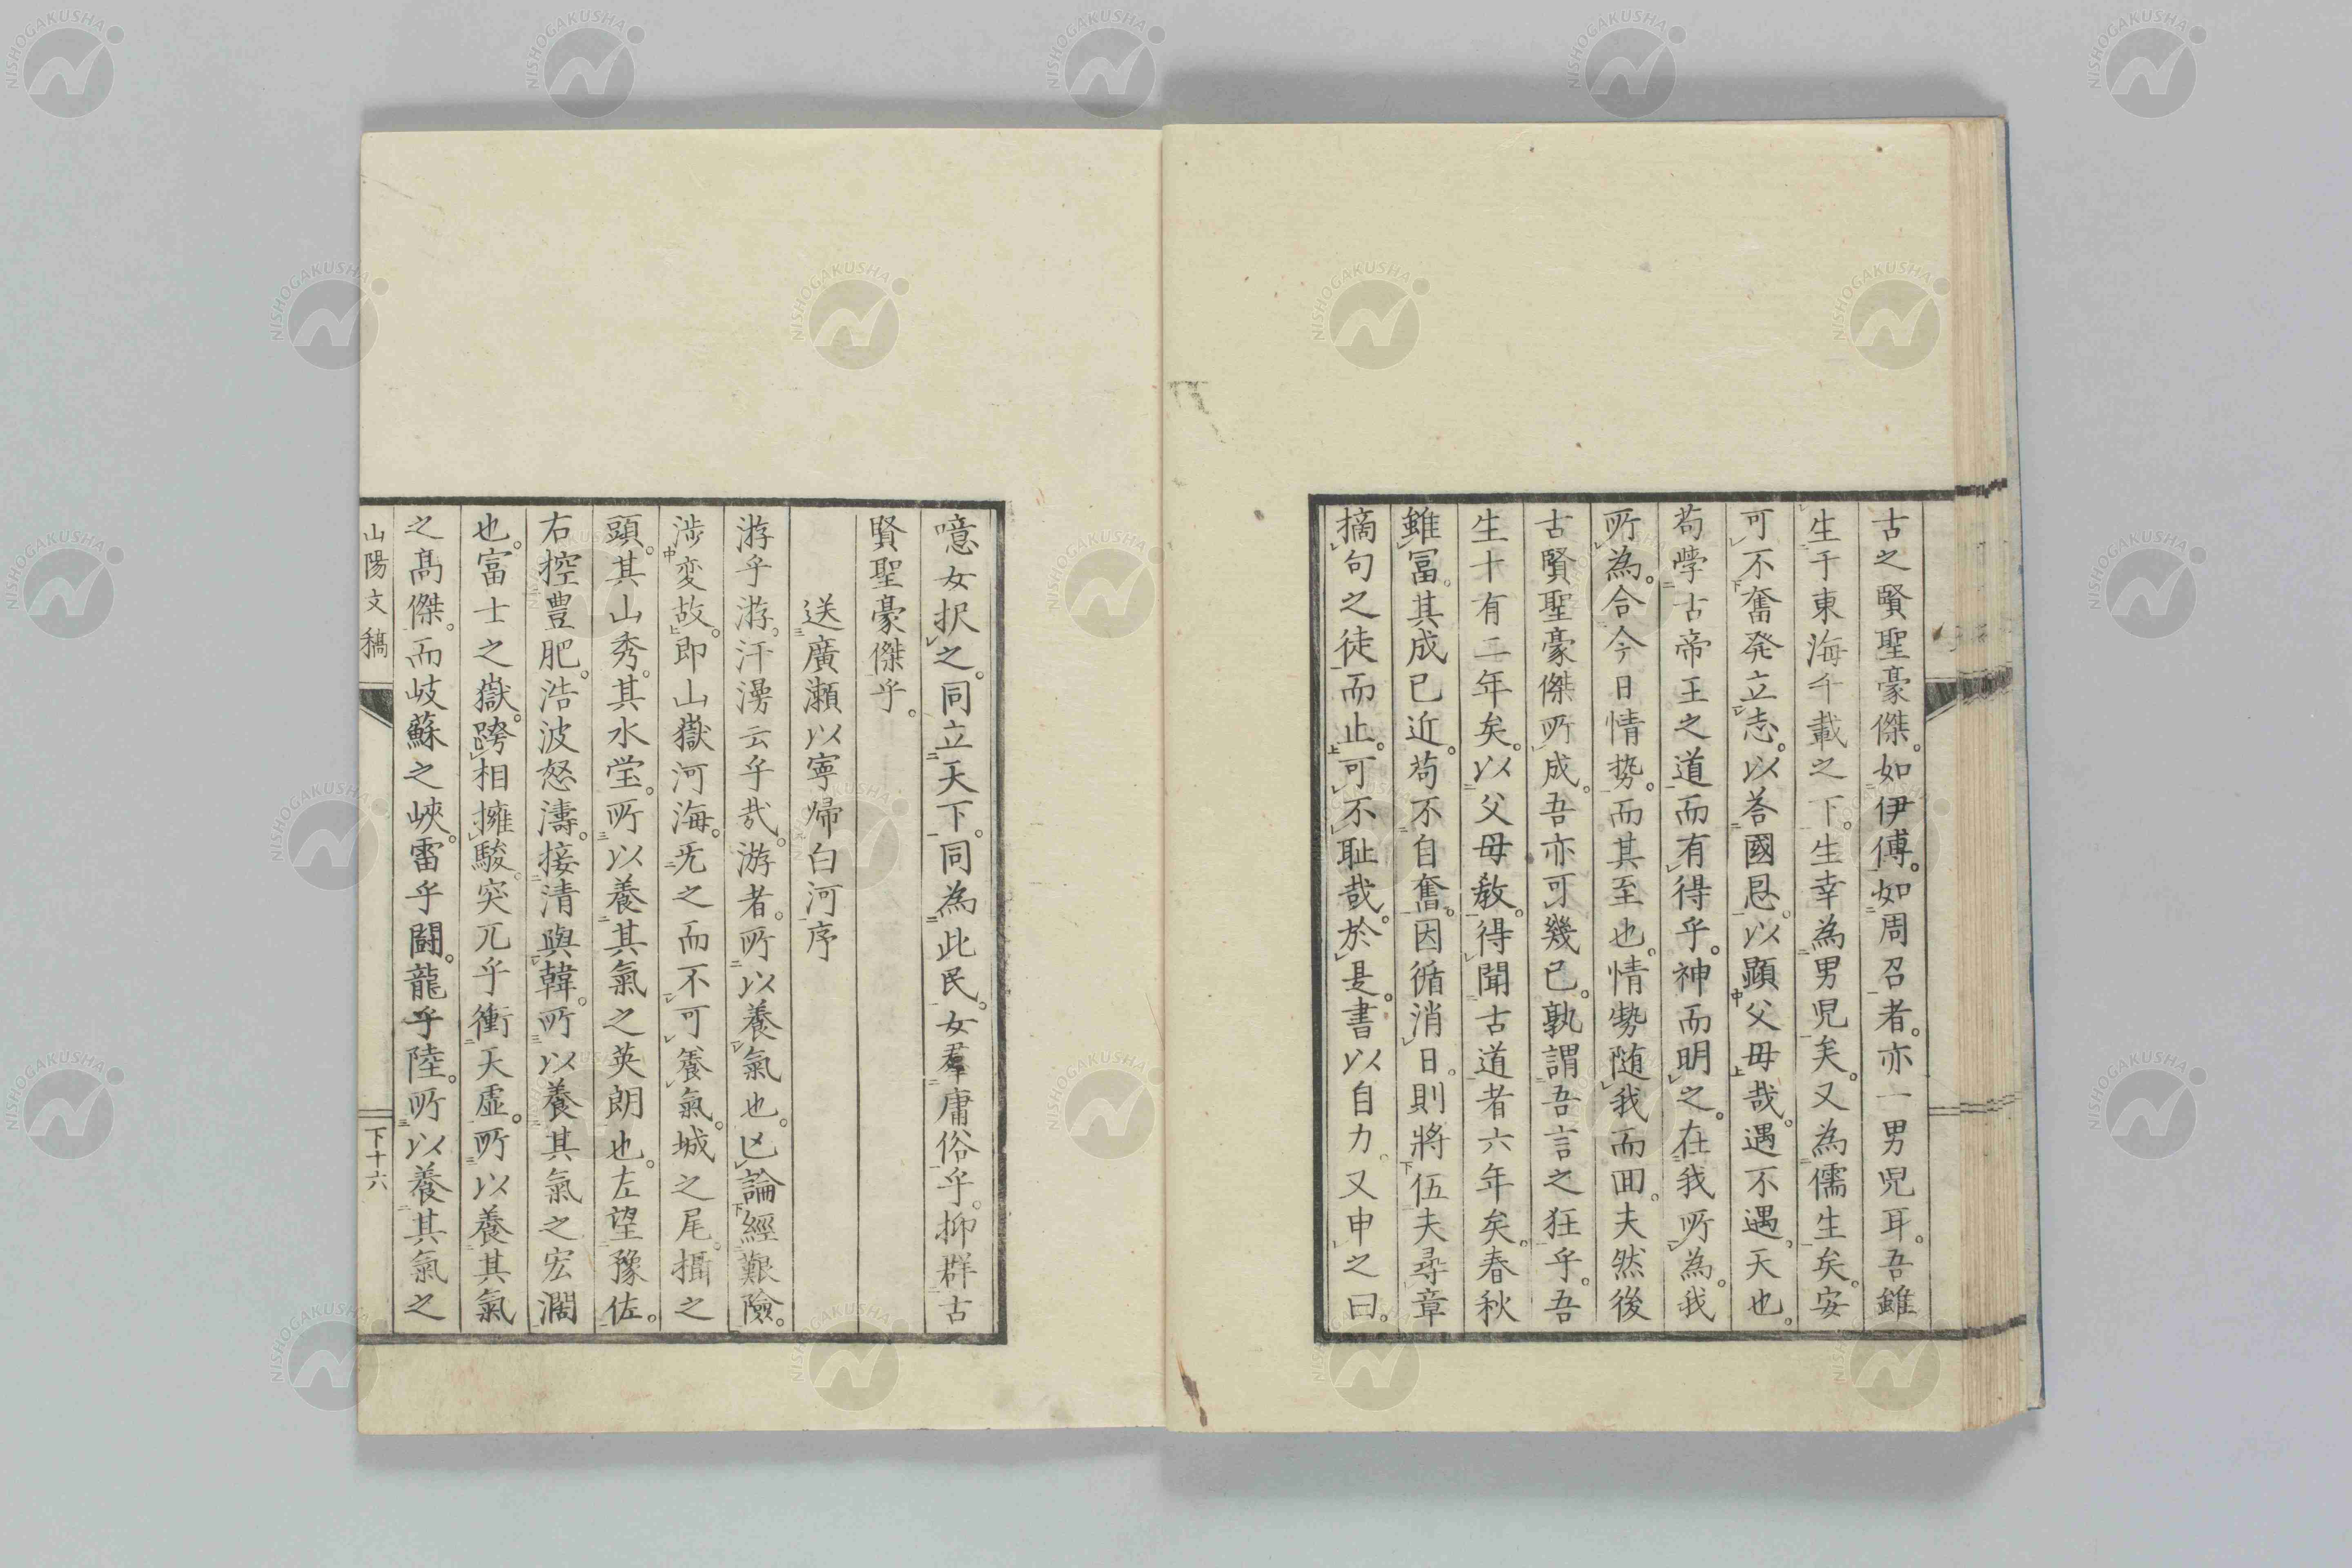 古之賢聖豪傑。如伊傅。如周召者。亦一男児耳。吾雖
生于東海千載之下。生幸為男児矣。又為儒生矣。安
可不奮発立志。以荅國恩。以顕父母哉。遇不遇。天也。
苟学古帝王之道而有得乎。神而明之。在我所為。我
所為。合今日情勢。而其至也。情勢随我而回。夫然後
古賢聖豪傑所成。吾亦可幾已。孰謂吾言之狂乎。吾
生十有二年矣。以父母教。得聞古道者六年矣。春秋
雖冨。其成已近。苟不自奮。因循消日。則將伍夫尋章
摘句之徒而止。可不耻哉。於是。書以自力。又申之曰。
噫女択之。同立天下。同為此民。女羣庸俗乎。抑群古
賢聖豪傑乎。
送廣瀬以寧帰白河序
游乎游。汗漫云乎哉。游者。所以養氣也。匹論經艱險。
渉変故。即山嶽河海。旡之而不可養氣。城之尾。攝之
頭。其山秀。其水瑩。所以養其氣之英朗也。左望豫佐。
右控豊肥。浩波怒濤。接清與韓。所以養其氣之宏濶
也。富士之嶽。跨相擁駿。突兀乎衝天虚。所以養其氣
之髙傑。而岐蘇之峽。雷乎闘。龍乎陸。所以養其氣之
山陽文稿
下十六
NISHOGAKUSHA